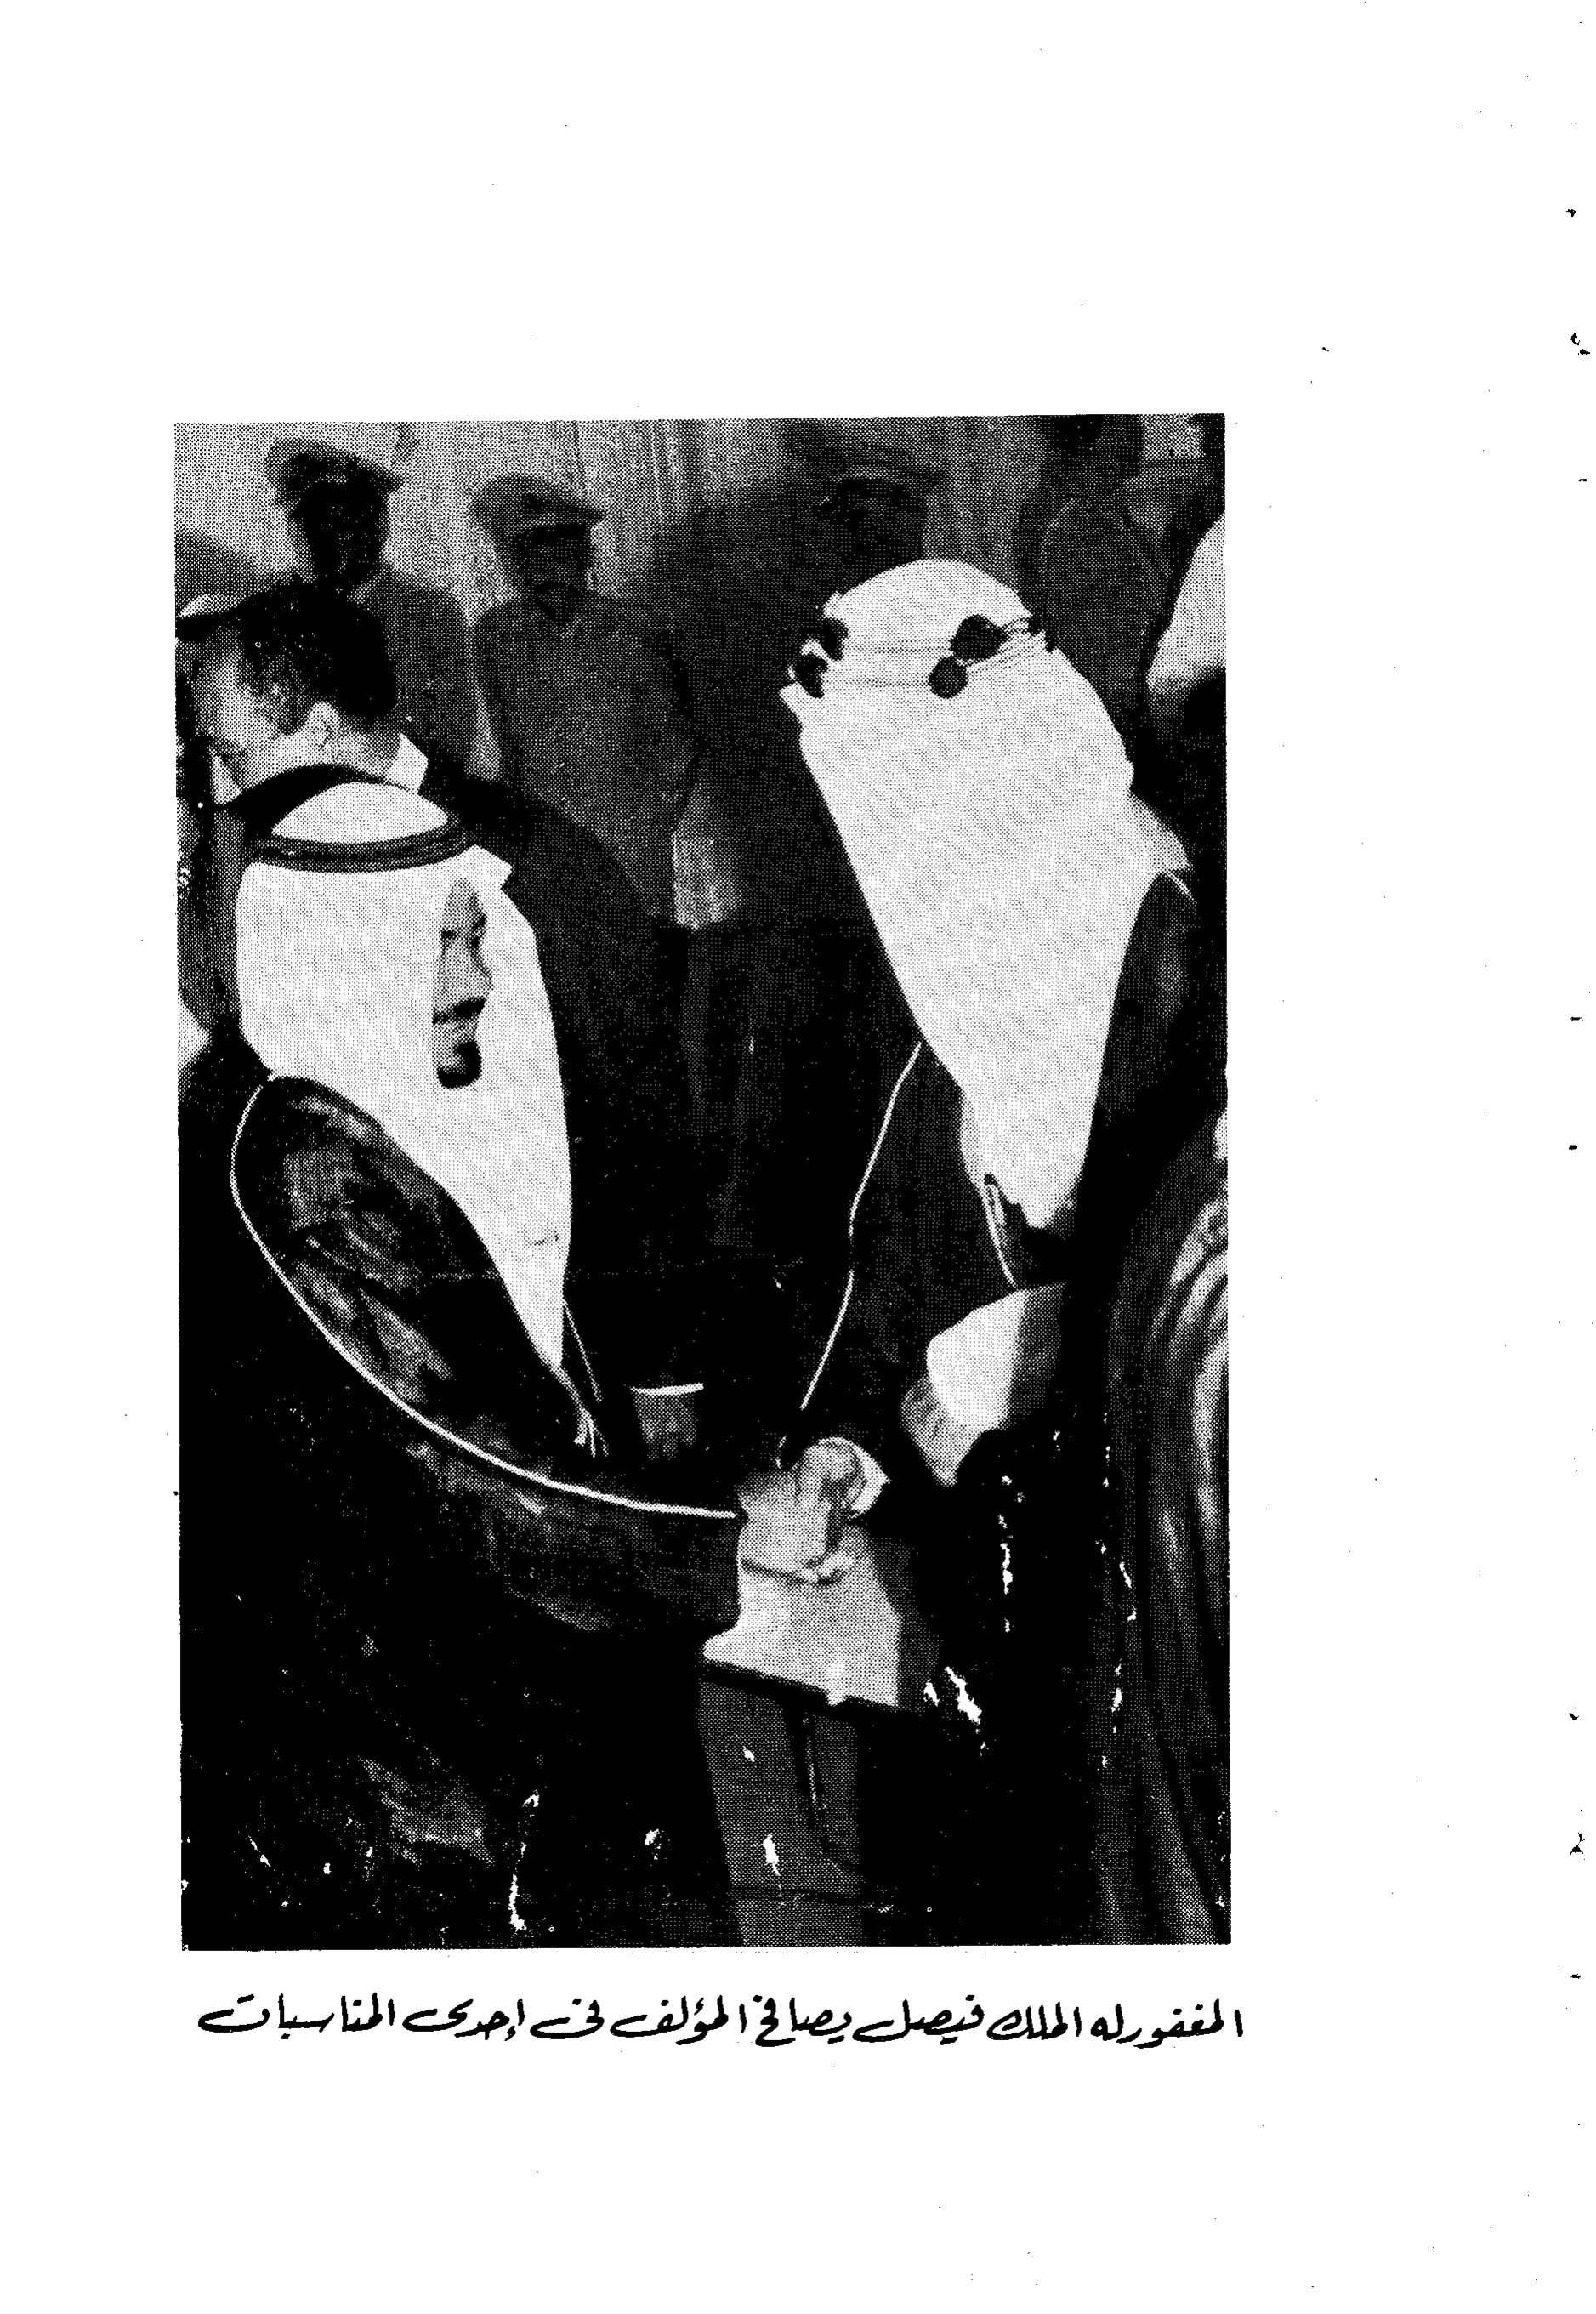 المغفور له الملك فيصل يصافح المؤلف في إحدى المناسبات